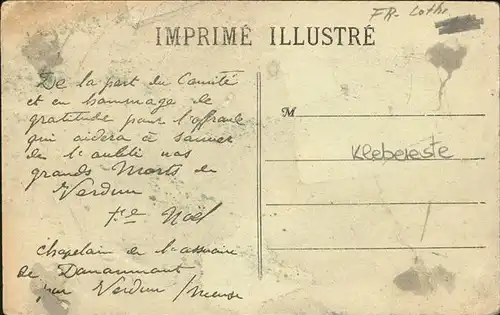 FR- Loth.
IMPRIMÉ ILLUSTRÉ
De la part du Comité
et en hommage de
gratitude pour l'offrande
qui aidera à sauver
de l'oubli nos
grands Morts de
Verdun
Noël
chapelain de l'ossuaire
de Douaumont
par Verdun /Meuse
M
Klebereste